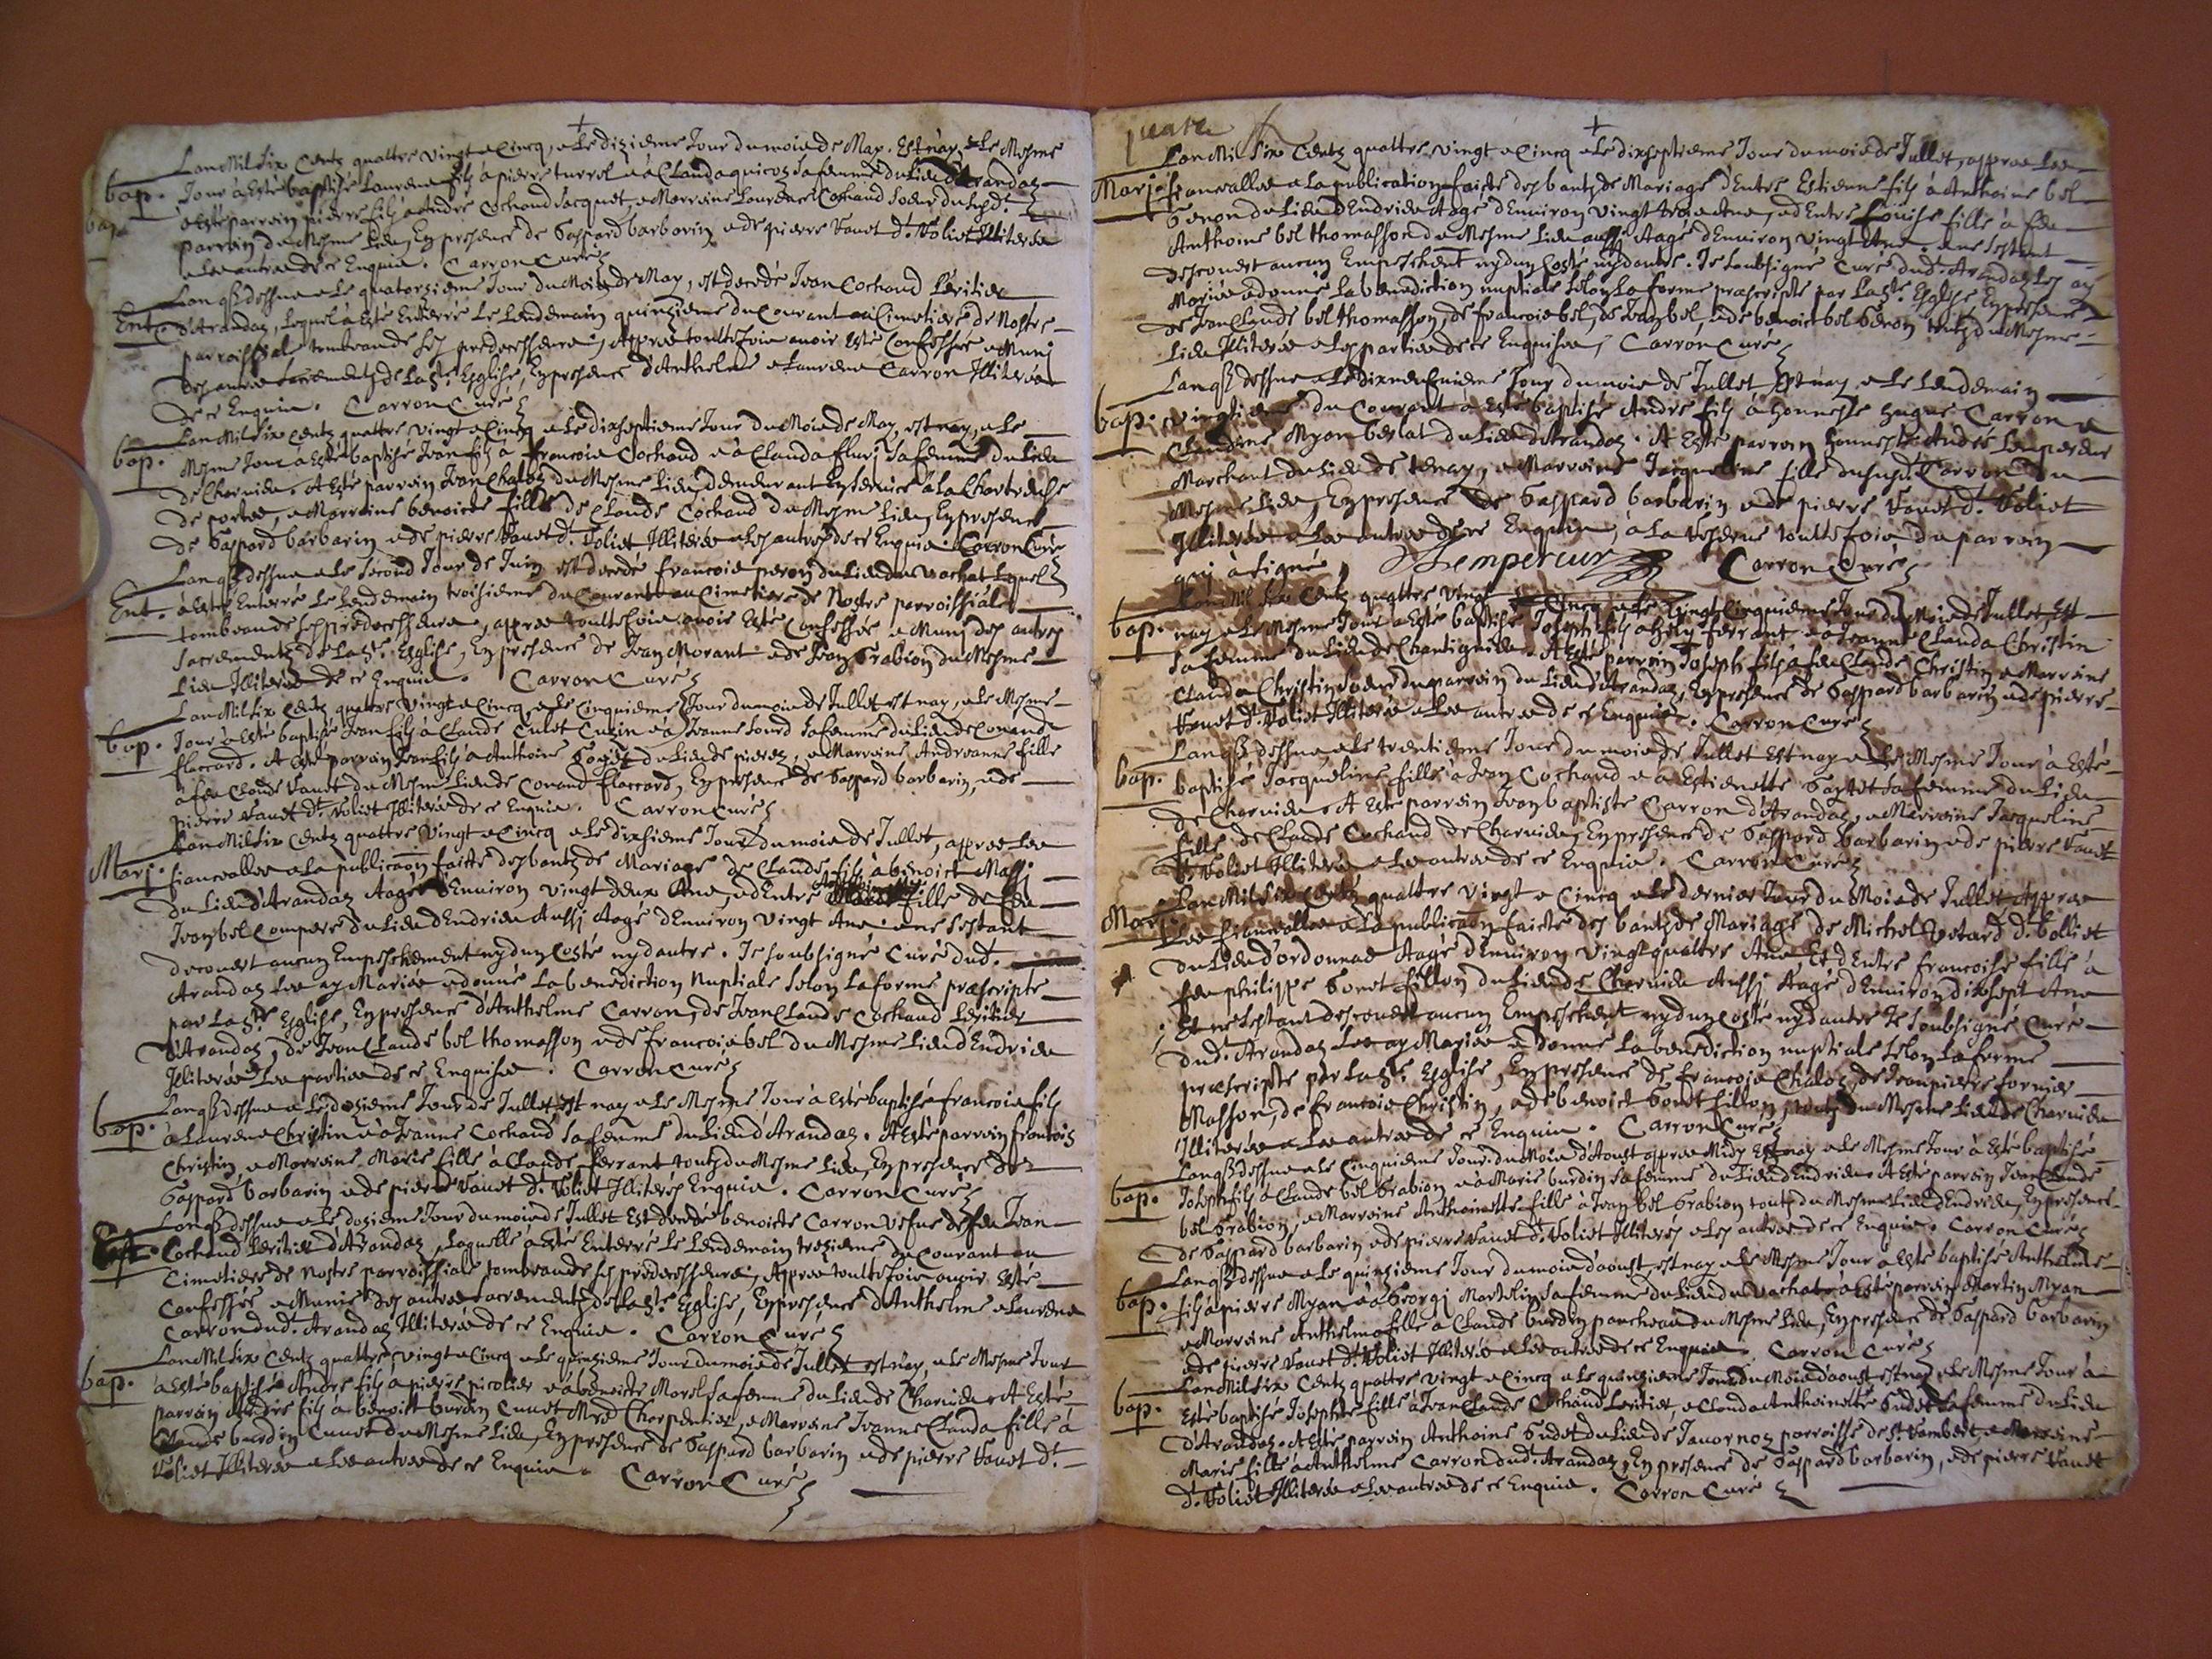 +
Lan Mil Six Centz quattre vingt e Cincq, e Le dizieme Jour du mois de May. Est nay, e Le Mesme
bap. Jour à Esté baptisé Laurens filz à pierre turrel e à Clauda quicoz sa femme du Lieu d'Arandaz
à Esté parrain pierre filz à André Cochand Jacquet, e Marreine Laurence Cochand soeur dususd.
parrain du Mesme Lieu, En presence de Gaspard barbarin e de pierre Vanet d. Voliet Illiterés
e Les autres de ce Enquis. Carron Curé
Lan q dessus e Le quatorzieme Jour du Mois de May, est decedé Jean Cochand Peritier
Ent. d'Arandaz, Lequel à Esté Enterré Le Lendemain quinzieme du Courant au Cimetiere de Nostre
parroissiale tombeau de ses predecesseurs, Appres touttefois avoir Esté Confessés e Muni
des autres sacrementz de La Ste Esglise, En presence d'Anthelme e Laurens Carron Illiterés
de ce Enquis. Carron Curé
Lan Mil Six Centz quattre vingt e Cincq e Le dixseptieme Jour du Mois de May, est nay, e Le
bap. Mesme Jour à Esté baptisé Jean filz à Francois Cochand e à Clauda flurj sa femme du Lieu
de Charvieu. A Esté parrain Jean Chaloz du Mesme Lieu, demeurant En service à La Chartreuse
de portes, e Marreine benoiste fille de Claude Cochand du Mesme Lieu, En presence
de Gaspard barbarin e de pierre Vanet d. Voliet Illiterés e Les autres de ce Enquis Carron Curé
Lan q dessus e Le second Jour de Juin est decedé francois peron du Lieu du Vachat Lequel
Ent. à Esté Enterré Le Lendemain troisieme du Courant au Cimetiere de Nostre parroissiale
tombeau de ses predecesseurs, appres touttefois avoir Esté Confessés e Muni des autres
Sacrementz de La Ste Esglise, En presence de Jean Morant e de Jean Grabion du Mesme
Lieu Illiterés de ce Enquis. Carron Curé
Lan Mil Six Centz quattre vingt e Cincq e Le Cinquieme Jour du mois de Jullet est nay, e Le Mesme
bap. Jour à Esté baptisé Jean filz à Claude Culet Cusin e à Jeanne Sourd sa femme du Lieu de Conand
flaccard. A Esté parrain Jean filz à Anthoine du Lieu de pierez, e Marreine Andreanne fille
à feu Claude Vanet du Mesme Lieu de Conand flaccard, En presence de Gaspard barbarin, e de
pierre Vanet d. Voliet Illiterés de ce Enquis. Carron Curé
Lan Mil Six Centz quattre vingt e Cincq e Le dixsieme Jour du mois de Jullet, appres Les
Marj. fiancealles e La publicaon faicte des bantz de Mariage de Claude filz à benoict Massj
du Lieu d'Arandaz Aagé d'Environ vingt deux Ans, e d'Entre fille de feu
Jean bel Compere du Lieu d'Endrieu Aussj Aagé d'Environ vingt Ans. e ne s'estant
decouvert aucun Empeschement ny d'un Costé ny d'autre. Je soubsigné Curé dud.
Arandaz Les ay Mariés e donné La benediction Nuptiale selon La forme prescripte
par La Ste Esglise, En presence d'Anthelme Carron, de Jean Claude Cochand Peritier
d'Arandaz, de Jean Claude bel thomasson e de francois bel du Mesme Lieu d'Endrieu
Illiterés Les parties de ce Enquises. Carron Curé
Lan q dessus e Le dozieme Jour de Jullet est nay e Le Mesme Jour à Esté baptisé Francois filz
bap. à Laurens Christin e à Jeanne Cochand sa femme du Lieu d'Arandaz. A Esté parrain francois
Christin, e Marreine Marie fille à Claude ferrant toutz du Mesme Lieu, En presence de
Gaspard barbarin e de pierre Vanet d. Voliet Illiterés Enquis. Carron Curé
Lan q dessus e Le dozieme Jour du mois de Jullet Est decedé benoiste Carron vefve de feu Jean
Ent. Cochand Peritier d'Arandaz, Laquelle à Esté Enterré Le Lendemain trezieme du Courant au
Cimetiere de Nostre parroissiale tombeau de ses predecesseurs, Appres touttefois avoir Esté
Confessés e Munie des autres sacrementz de La Ste Esglise, En presence d'Anthelme e Laurens
Carron dud. Arandaz Illiterés de ce Enquis. Carron Curé
Lan Mil Six Centz quattre vingt e Cincq e Le quinzieme Jour du mois de Jullet est nay, e Le Mesme Jour
bap. à Esté baptisé André filz à pierre picolier e à benoiste Morel sa femme du Lieu de Charvieu A Esté
parrain André filz à benoict burdin Cunet Mtre Charpentier, e Marreine Jeanne Clauda fille à
Claude burdin Cunet du Mesme Lieu, En presence de Gaspard barbarin e de pierre Vanet d.
Voliet Illiterés e Les autres de ce Enquis. Carron Curé
+
Lan Mil Six Centz quattre vingt e Cincq e Le dixseptieme Jour du mois de Jullet, appres Les
Marj. fiancealles e La publication faicte des bantz de Mariage d'Entre Estienne filz à Anthoine bel
Genon du Lieu d'Endrieu Aagé d'Environ vingt trois Ans, e d'Entre Louise fille à feu
Anthoine bel thomasson du Mesme Lieu aussj Aagé d'Environ vingt Ans. e ne s'estant
descouvert aucun Empeschent ny d'un Costé ny d'autre. Je soubsigné Curé dud. Arandaz Les ay
Mariés e donné La benediction nuptiale selon La forme prescripte par La Ste Esglise, En presence
de Jean Claude bel thomasson, de francois bel, de Jean bel, e de benoict bel Genon toutz du Mesme
Lieu Illiterés e Les parties de ce Enquises, Carron Curé
Lan q dessus e Le dixneufvieme Jour du mois de Jullet Est nay e Le Lendemain
bap. vingtieme du Courant à Esté baptisé André filz à honneste hugue Carron e
Claudine Myon berlat du Lieu d'Arandaz. A Esté parrain honneste André Lempereur
Marchant du Lieu de tenay, e Marreine Jacqueline fille dususd. Carron du
Mesme Lieu, En presence de Gaspard barbarin e de pierre Vanet d. Voliet
Illiterés e Les autres de ce Enquis, à La reserve touttefois du parrain
qui à signé, Lempereur Carron Curé
Lan Mil Six Centz quattre vingt e Cincq e Le vingt Cinquieme Jour du Mois de Jullet Est
bap. nay e Le Mesme Jour à Esté baptisé Joseph filz à hely ferrant e à Jeanne Clauda Christin
sa femme du Lieu de Chantignieu. A Esté parrain Joseph filz à feu Claude Christin e Marreine
Clauda Christin soeur du parrain du Lieu d'Arandaz, En presence de Gaspard barbarin e de pierre
Vanet d. Voliet Illiterés e Les autres de ce Enquis. Carron Curé
Lan q dessus e Le trentieme Jour du mois de Jullet Est nay e Le Mesme Jour à Esté
bap. baptisé Jacqueline fille à Jean Cochand e à Estiennette sa femme du Lieu
de Charvieu. A Esté parrain Jean baptiste Carron d'Arandaz, e Marreine Jacqueline
fille de Claude Cochand de Charvieu, En presence de Gaspard barbarin e de pierre Vanet
d. Voliet Illiterés e Les autres de ce Enquis. Carron Curé
Lan Mil Six Centz quattre vingt e Cincq e Le dernier Jour du Mois de Jullet Appres
Marj. Les fiancealles e La publicaon faicte des bantz de Mariage de Michel d. bolliet
du Lieu d'ordonnas Aagé d'Environ vingt quattre Ans Et d'Entre francoise fille à
feu philippe Gonet fillon du Lieu de Charvieu Aussj Aagé d'Environ dixsept Ans
Et ne s'estant descouvert aucun Empeschent ny d'un Costé ny d'autre Je soubsigné Curé
dud. Arandaz Les ay Mariés e donné La benediction nuptiale selon La forme
prescripte par La Ste Esglise, En presence de francois Chaloz, de Jean pierre fornier
Masson, de francois Christin, e de benoict Gonet fillon, toutz du Mesme Lieu de Charvieu
Illiterés e Les autres de ce Enquis. Carron Curé
Lan q dessus e Le Cinquieme Jour du Mois d'Aoust appres Midy Est nay e Le Mesme Jour à Esté baptisé
bap. Joseph filz à Claude bel Grabion e à Marie burdin sa femme du Lieu d'Endrieu. A Esté parrain Jean Claude
bel Grabion, e Marreine Anthoinette fille à Jean bel Grabion toutz du Mesme Lieu d'Endrieu, En presence
de Gaspard barbarin e de pierre Vanet d. Voliet Illiterés e Les autres de ce Enquis. Carron Curé
Lan q dessus e Le quinzieme Jour du mois d'aoust, est nay e Le Mesme Jour à Esté baptisé Anthelme
bap. filz à pierre Myan e à Georgj Martelin sa femme du Lieu du Vachat à Esté parrain Martin Myan
e Marreine Anthelma fille à Claude burdin du Mesme Lieu, En presence de Gaspard barbarin
e de pierre Vanet d. Voliet Illiterés e Les autres de ce Enquis. Carron Curé
Lan Mil Six Centz quattre vingt e Cincq e Le quinzieme Jour du Mois d'aoust est nay e Le Mesme Jour à
bap. Esté baptisé Josephte fille à Jean Claude Cochand Peritier, e Clauda Anthoinette Gudet sa femme du Lieu
d'Arandaz. A Esté parrain Anthoine Gudet du Lieu de Javornoz parroisse de St Rambert, e Marreine
Marie fille à Anthelme Carron dud. Arandaz, En presence de Gaspard barbarin, e de pierre Vanet
d. Voliet Illiterés e Les autres de ce Enquis. Carron Curé